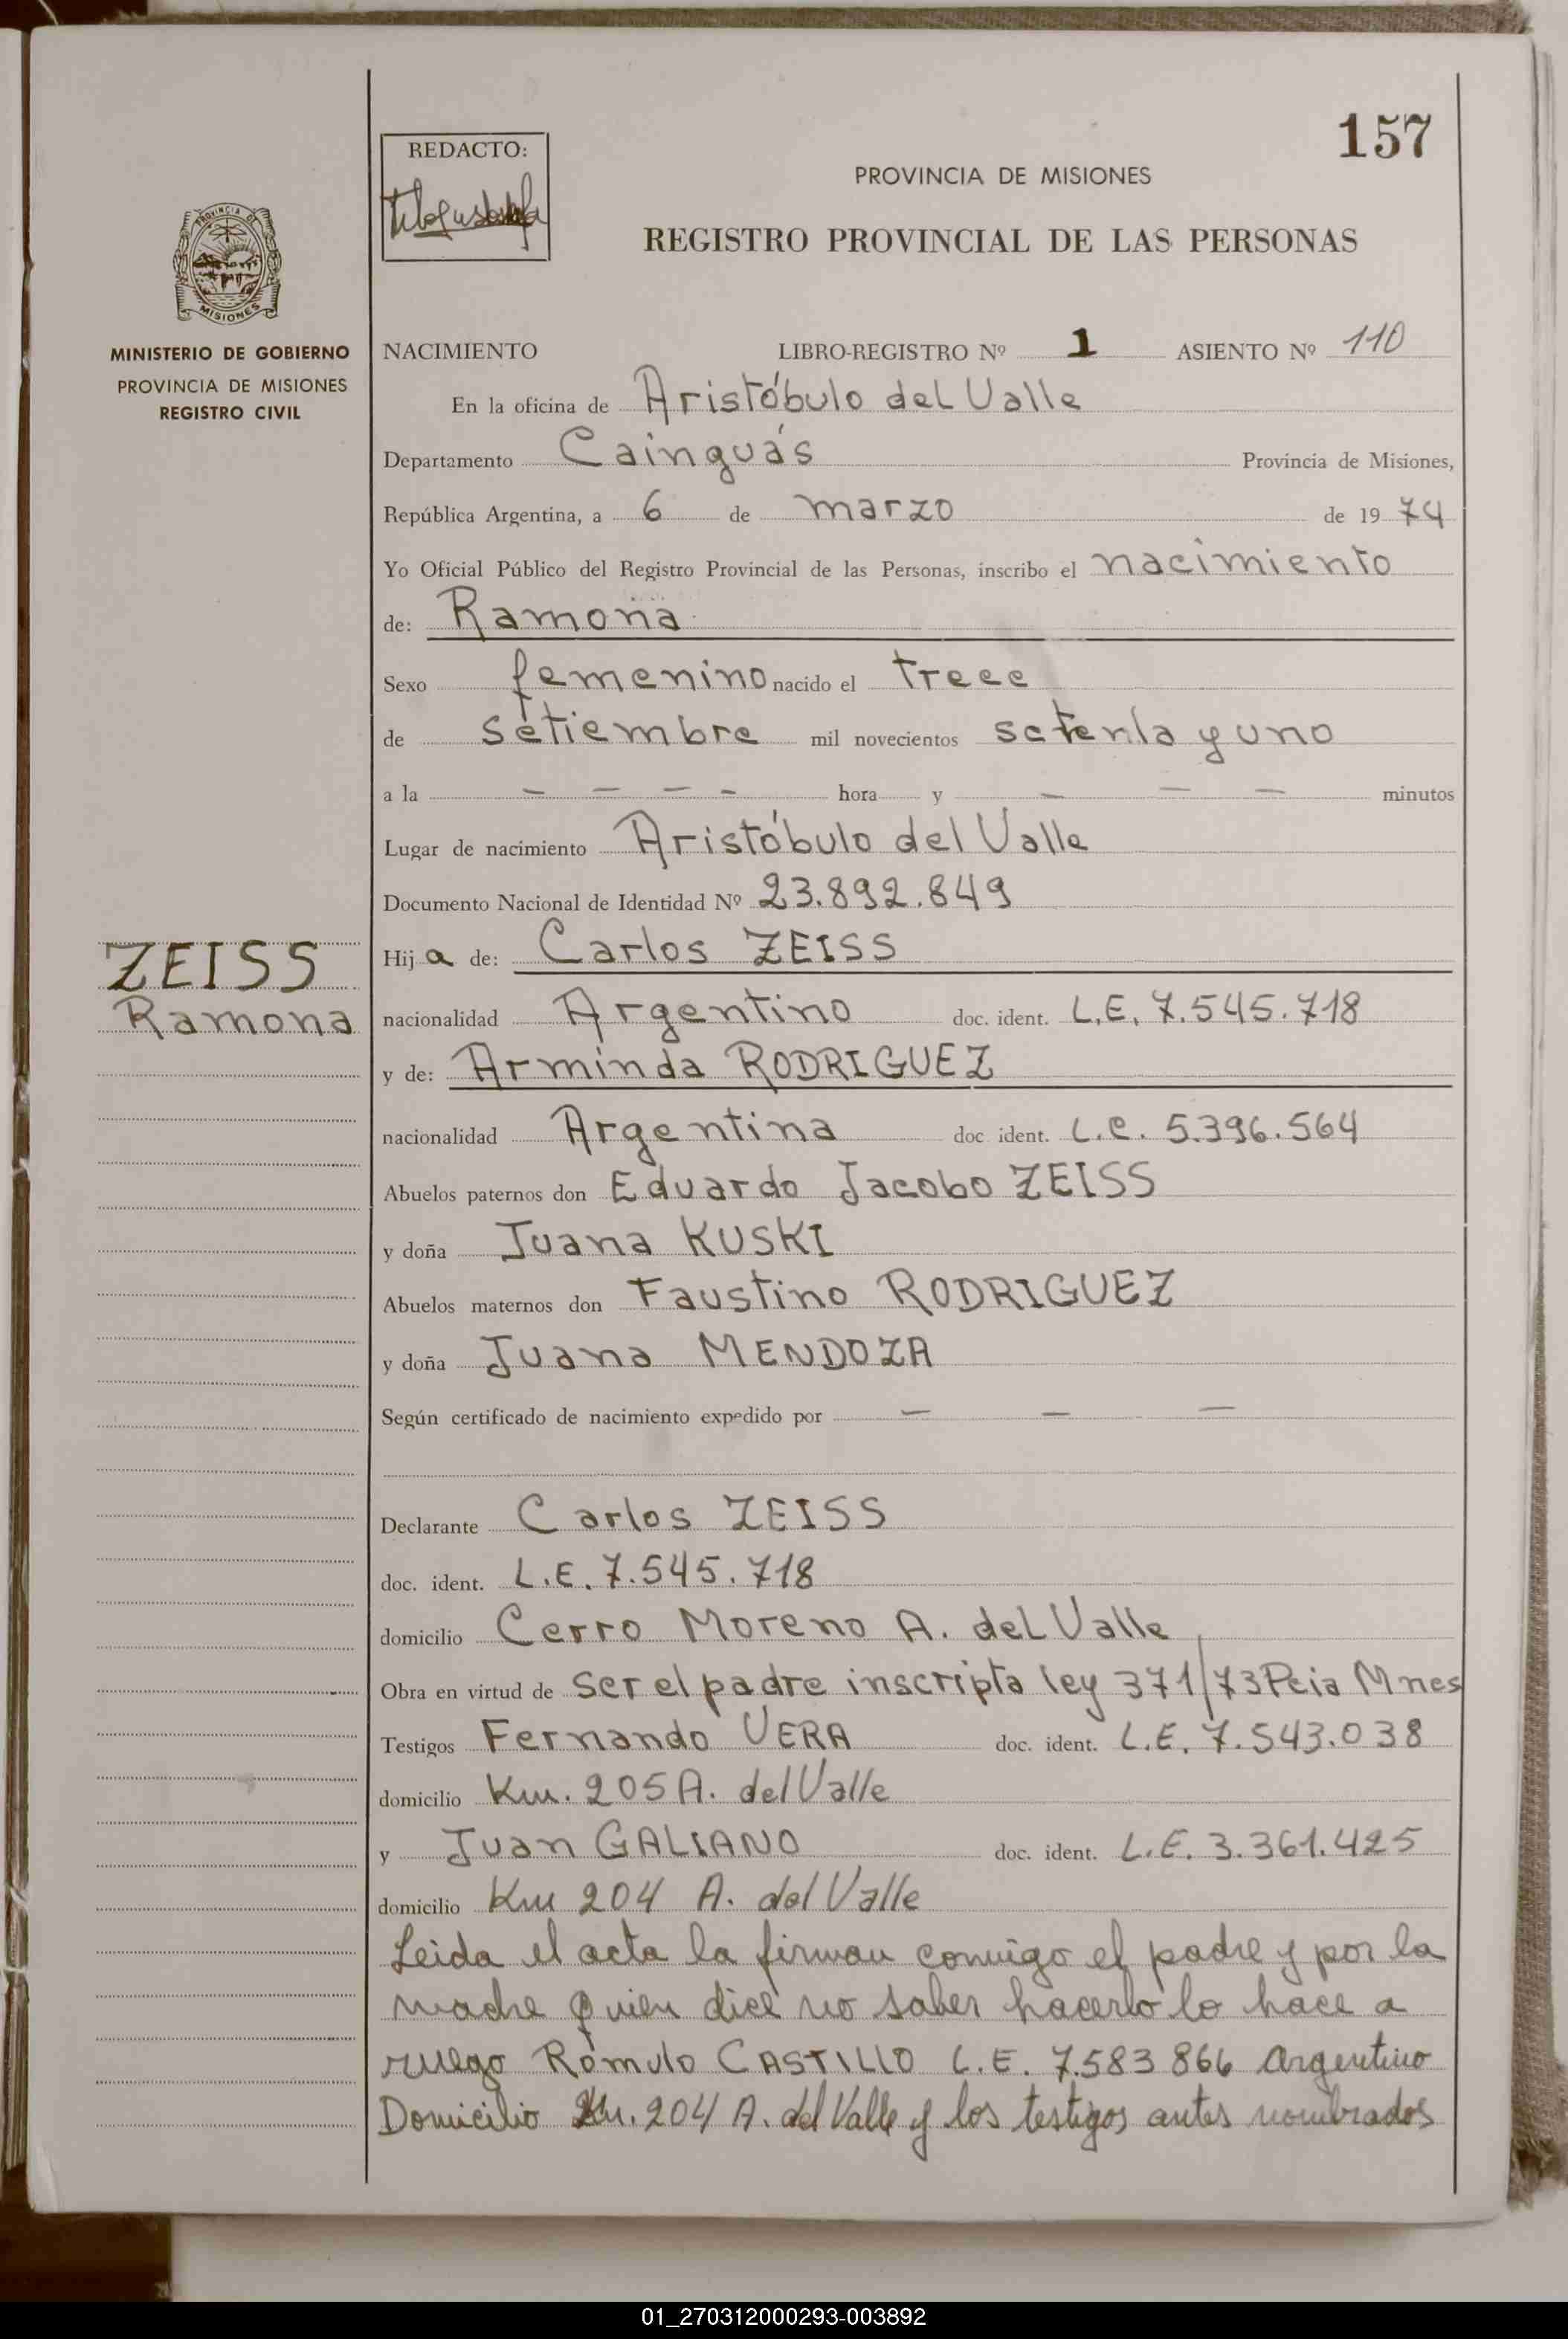 157
REDACTO:
PROVINCIA DE MISIONES
REGISTRO PROVINCIAL DE LAS PERSONAS
PROVINCIA DE
MISIONES
MINISTERIO DE GOBIERNO
PROVINCIA DE MISIONES
REGISTRO CIVIL
NACIMIENTO LIBRO-REGISTRO Nº 1 ASIENTO Nº 110
En la oficina de Aristóbulo del Valle
Departamento Cainguás Provincia de Misiones,
República Argentina, a 6 de marzo de 1974
Yo Oficial Público del Registro Provincial de las Personas, inscribo el nacimiento
de: Ramona
Sexo femenino nacido el trece
de setiembre mil novecientos setenta y uno
a la - - - - hora y - - - minutos
Lugar de nacimiento Aristóbulo del Valle
Documento Nacional de Identidad Nº 23.892.849
ZEISS
Ramona
Hija de: Carlos ZEISS
nacionalidad Argentino doc. ident. L.E. 7.545.718
y de: Arminda RODRIGUEZ
nacionalidad Argentina doc ident. L.C. 5.396.564
Abuelos paternos don Eduardo Jacobo ZEISS
y doña Juana KUSKI
Abuelos maternos don Faustino RODRIGUEZ
y doña Juana MENDOZA
Según certificado de nacimiento expedido por - - -
Declarante Carlos ZEISS
doc. ident. L.E. 7.545.718
domicilio Cerro Moreno A. del Valle
Obra en virtud de ser el padre inscripta ley 371/73 Pcia Mnes
Testigos Fernando VERA doc. ident. L.E. 7.543.038
domicilio Km. 205 A. del Valle
y Juan GALIANO doc. ident. L.E. 3.361.425
domicilio Km 204 A. del Valle
Leida el acta la firman conmigo el padre y por la
madre quien dice no saber hacerlo lo hace a
ruego Rómulo CASTILLO L.E. 7.583 866 Argentino
Domicilio Km. 204 A. del Valle y los testigos antes nombrados
01_270312000293-003892